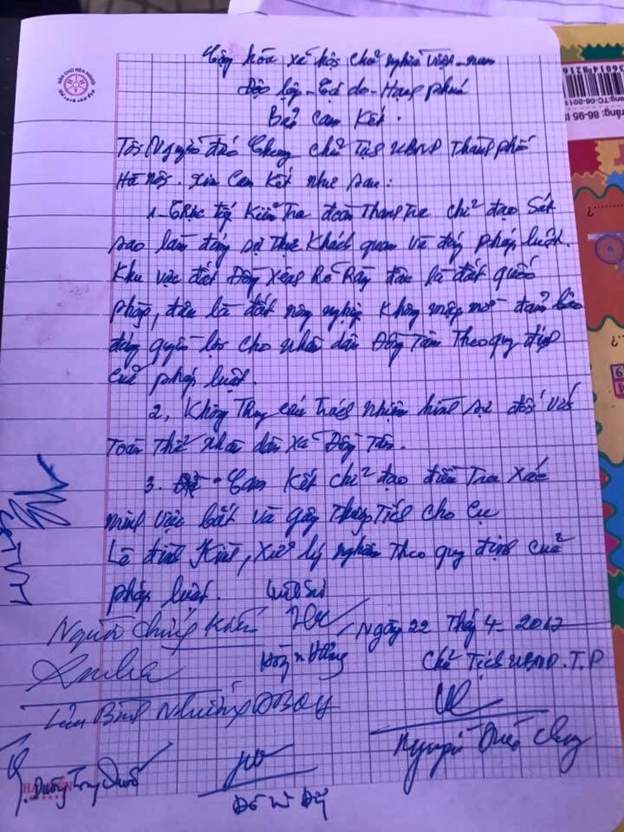 Cộng hòa xã hội chủ nghĩa Việt-nam
Độc lập - Tự do - Hạnh phúc
Bản Cam Kết.
Tôi Nguyễn Đức Chung chủ tịch UBND Thành phố
Hà Nội. xin Cam Kết như sau:
1. Trực tiếp Kiểm Tra đoàn Thanh Tra chỉ đạo Sát
sao làm đúng sự Thật Khách quan và đúng pháp luật.
Khu vực đất Đồng Xênh Rõ Ràng đâu là đất quốc
phòng, đâu là đất nông nghiệp không mập mờ đảm bảo
đúng quyền lợi cho nhân dân Đồng Tâm Theo quy định
của pháp luật.
2, Không Truy cứu Trách nhiệm hình sự đối với
Toàn Thể nhân dân xã Đồng Tâm.
3. Cam Kết chỉ đạo điều Tra Xác
minh việc bắt và gây Thương Tích cho Cụ
Lê Đình Kình, xử lý nghiêm Theo quy định của
pháp luật.
Người chứng kiến
Ngày 22 Tháng 4 - 2017
Chủ Tịch UBND.T.P
Lưu Bình Nhưỡng ĐBQH
Nguyễn Đức Chung
Dương Trung Quốc